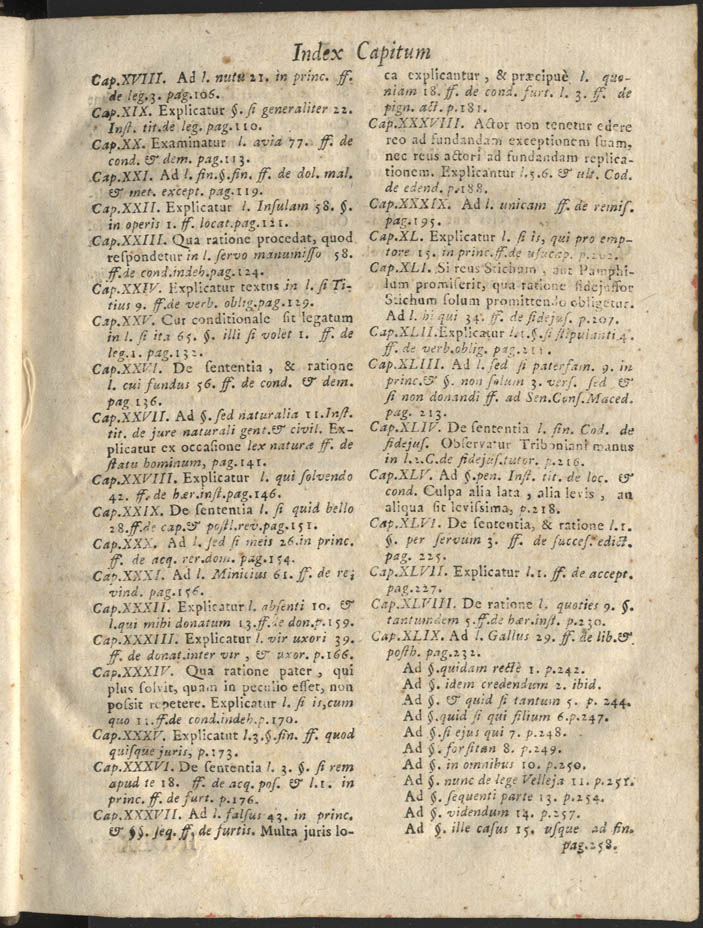 Index Capitum
Cap.XVIII. Ad l. nutu 21. in princ. ff.
de leg.3. pag.106.
Cap.XIX. Explicatur §. si generaliter 22.
Inst. tit.de leg. pag.110.
Cap.XX. Examinatur l. avia 77. ff. de
cond. & dem. pag.113.
Cap.XXI. Ad l. fin.§.fin. ff. de dol. mal.
& met. except. pag.119.
Cap.XXII. Explicatur l. Insulam 58. §.
in operis 1. ff. locat.pag.121.
Cap.XXIII. Qua ratione procedat, quod
respondetur in l. servo manumisso 58.
ff.de cond.indeb.pag.124.
Cap.XXIV. Explicatur textus in l. si Ti-
tius 9. ff.de verb. oblig.pag.129.
Cap.XXV. Cur conditionale sit legatum
in l. si ita 65. §. illi si volet 1. ff. de
leg.1. pag.132.
Cap.XXVI. De sententia, & ratione
l. cui fundus 56. ff. de cond. & dem.
pag 136.
Cap.XXVII. Ad §. sed naturalia 11.Inst.
tit. de jure naturali gent.& civil. Ex-
plicatur ex occasione lex naturæ ff. de
statu hominum, pag.141.
Cap.XXVIII. Explicatur l. qui solvendo
42. ff. de hær.inst.pag.146.
Cap.XXIX. De sententia l. si quid bello
28.ff.de cap.& postl.rev.pag.151.
Cap.XXX. Ad l. sed si meis 26.in princ.
ff. de acq. rer.dom. pag.154.
Cap.XXXI. Ad l. Minicius 61. ff. de rei
vind. pag.156.
Cap.XXXII. Explicatur l. absenti 10. &
l.qui mihi donatum 13.ff.de don.p.159.
Cap.XXXIII. Explicatur l. vir uxori 39.
ff. de donat.inter vir, & uxor. p.166.
Cap.XXXIV. Qua ratione pater, qui
plus solvit, quam in peculio esset, non
possit repetere. Explicatur l. si is,cum
quo 11.ff.de cond.indeb.p.170.
Cap.XXXV. Explicatut l.3.§.fin. ff. quod
quisque juris, p.173.
Cap.XXXVI. De sententia l. 3. §. si rem
apud te 18. ff. de acq. pos. & l.1. in
princ. ff. de furt. p.176.
Cap.XXXVII. Ad l. falsus 43. in princ.
& §§. seq. ff. de furtis. Multa juris lo-
ca explicantur, & præcipuè l. quo-
niam 18. ff. de cond. furt. l. 3. ff. de
pign. act. p.181.
Cap.XXXVIII. Actor non tenetur edere
reo ad fundandam exceptionem suam,
nec reus actori ad fundandam replica-
tionem. Explicantur l.5.6. & ult. Cod.
de edend. p.188.
Cap.XXXIX. Ad l. unicam ff. de remis.
pag.195.
Cap.XL. Explicatur l. si is, qui pro emp-
tore 15. in princ.ff.de usucap. p.202.
Cap.XLI. Si reus Stichum, aut Pamphi-
lum promiserit, qua ratione fidejussor
Stichum solum promittendo obligetur.
Ad l. hi qui 34. ff. de fidejus. p.207.
Cap.XLII.Explicatur l.1.§.si stipulanti 4.
ff. de verb.oblig. pag.211.
Cap.XLIII. Ad l. sed si paterfam. 9. in
princ.& §. non solum 3. vers. sed &
si non donandi ff. ad Sen.Cons.Maced.
pag. 213.
Cap.XLIV. De sententia l. fin. Cod. de
fidejus. Observatur Triboniani manus
in l.2.C.de fidejus.tutor. p.216.
Cap.XLV. Ad §.pen. Inst. tit. de loc. &
cond. Culpa alia lata, alia levis, an
aliqua sit levissima, p.218.
Cap.XLVI. De sententia, & ratione l.1.
§. per servum 3. ff. de succes. edict.
pag. 225.
Cap.XLVII. Explicatur l.1. ff. de accept.
pag.227.
Cap.XLVIII. De ratione l. quoties 9. §.
tantumdem 5.ff.de hær.inst. p.230.
Cap.XLIX. Ad l. Gallus 29. ff. de lib.&
posth. pag.232.
Ad §.quidam rectè 1. p.242.
Ad §. idem credendum 2. ibid.
Ad §. & quid si tantum 5. p. 244.
Ad §.quid si qui filium 6.p.247.
Ad §.si ejus qui 7. p.248.
Ad §. forsitan 8. p.249.
Ad §. in omnibus 10. p.250.
Ad §. nunc de lege Velleja 11. p.251.
Ad §. sequenti parte 13. p.254.
Ad §. videndum 14. p.257.
Ad §. ille casus 15. usque ad fin.
pag.258.